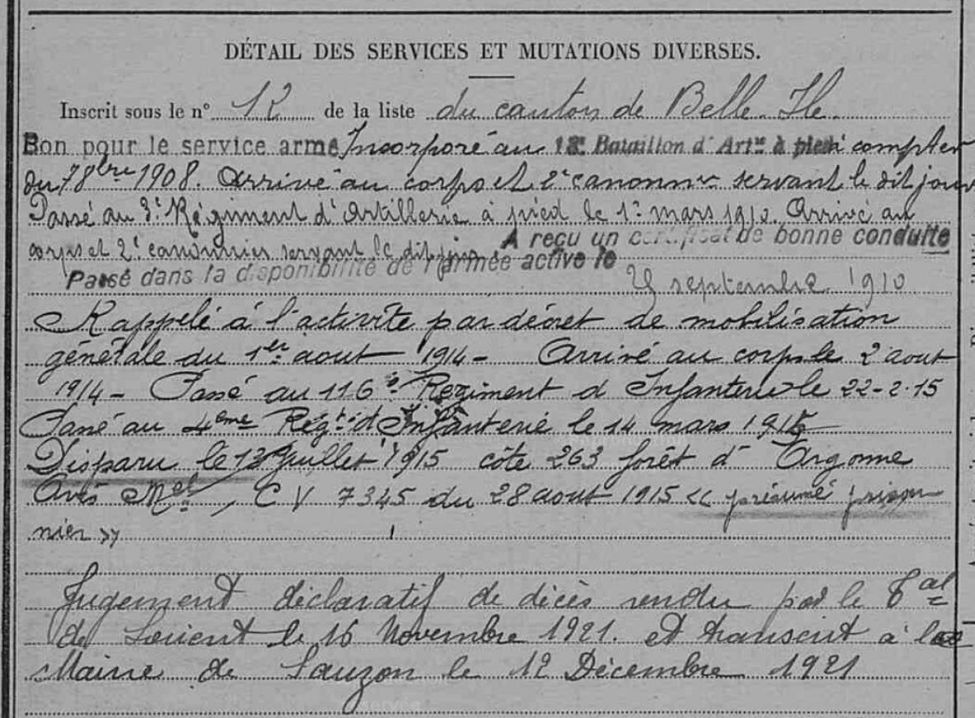 DÉTAIL DES SERVICES ET MUTATIONS DIVERSES.
Inscrit sous le n° 12 de la liste du canton de Belle-Ile
Bon pour le service armé Incorporé au 18e Bataillon d'Artie à pied à compter
du 7 8bre 1908. Arrivé au corps et 2e canonnier servant le dit jour
Passé au 3e Régiment d'Artillerie à pied le 1er mars 1910. Arrivé au
corps et 2e canonnier servant le dit jour. A reçu un certificat de bonne conduite
Passé dans la disponibilité de l'armée active le
25 septembre 1910
Rappelé à l'activité par décret de mobilisation
générale du 1er aout 1914 - Arrivé au corps le 2 aout
1914 - Passé au 116e Régiment d Infanterie le 22-2-15
Passé au 4eme Régt d'Infanterie le 14 mars 1915
Disparu le 13 Juillet 1915 côte 263 forêt d'Argonne
Avis Mel CV 7345 du 28 aout 1915 << présumé prison
nier >>
Jugement déclaratif de décès rendu par le Tal
de Lorient le 16 Novembre 1921. et transcrit à la
Mairie de Sauzon le 12 Décembre 1921